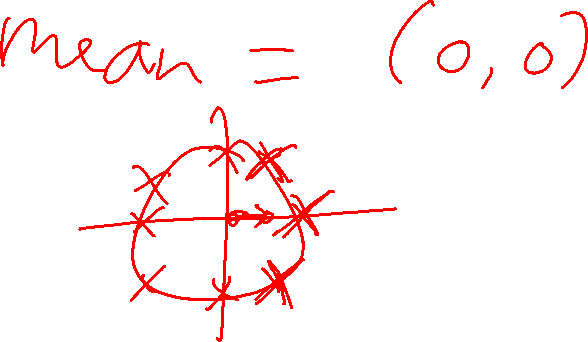 mean = (0,0)